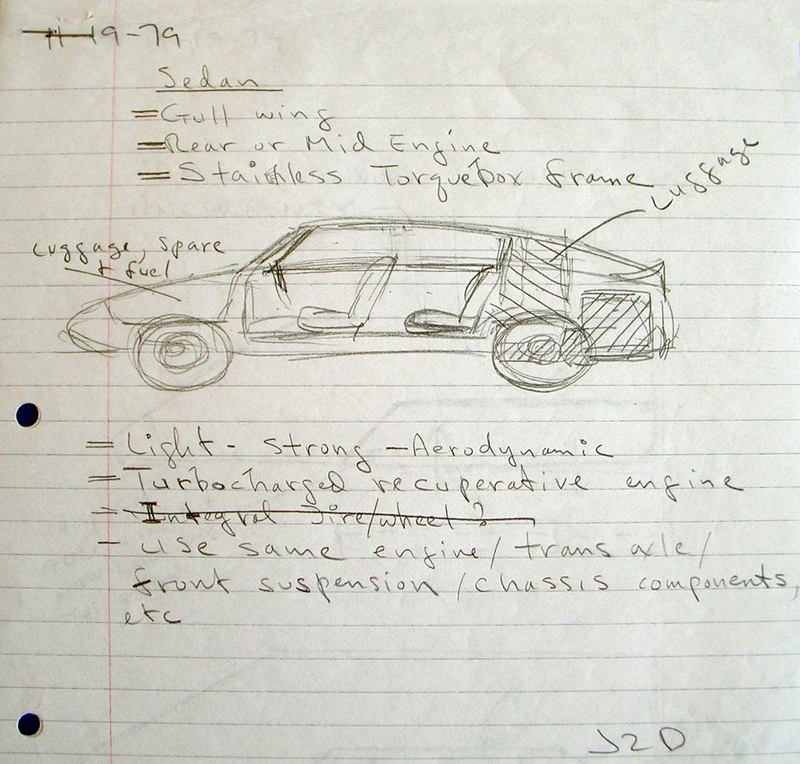 11-19-79
Sedan
= Gull wing
= Rear or Mid Engine
= Stainless Torquebox frame
Luggage
Luggage, spare
+ fuel
= Light - strong - Aerodynamic
= Turbocharged recuperative engine
= Integral Tire/wheel?
- use same engine/trans axle/
front suspension/chassis components,
etc
JZD